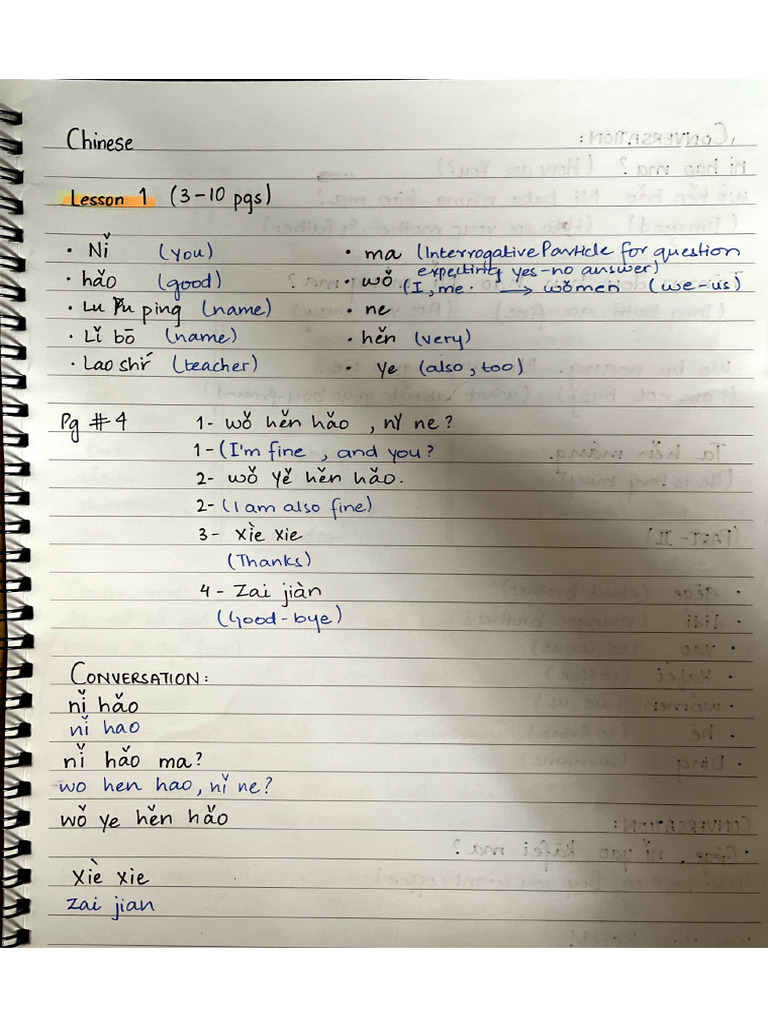 Chinese
Lesson 1 (3-10 pgs)
• Nǐ (you)
• hǎo (good)
• Lu Fu ping (name)
• Lǐ bō (name)
• Lao shī (teacher)
• ma (Interrogative Particle for question
expecting yes-no answer)
• wǒ (I, me. → wǒmen (we-us)
• ne
• hěn (very)
• ye (also, too)
Pg #4
1- wǒ hěn hǎo, nǐ ne?
1- (I'm fine, and you?
2- wǒ yě hěn hǎo.
2- (I am also fine)
3- xìe xie
(Thanks)
4- Zai jiàn
(Good-bye)
CONVERSATION:
nǐ hǎo
nǐ hao
nǐ hǎo ma?
wo hen hao, nǐ ne?
wǒ ye hěn hǎo
xiè xie
zai jian